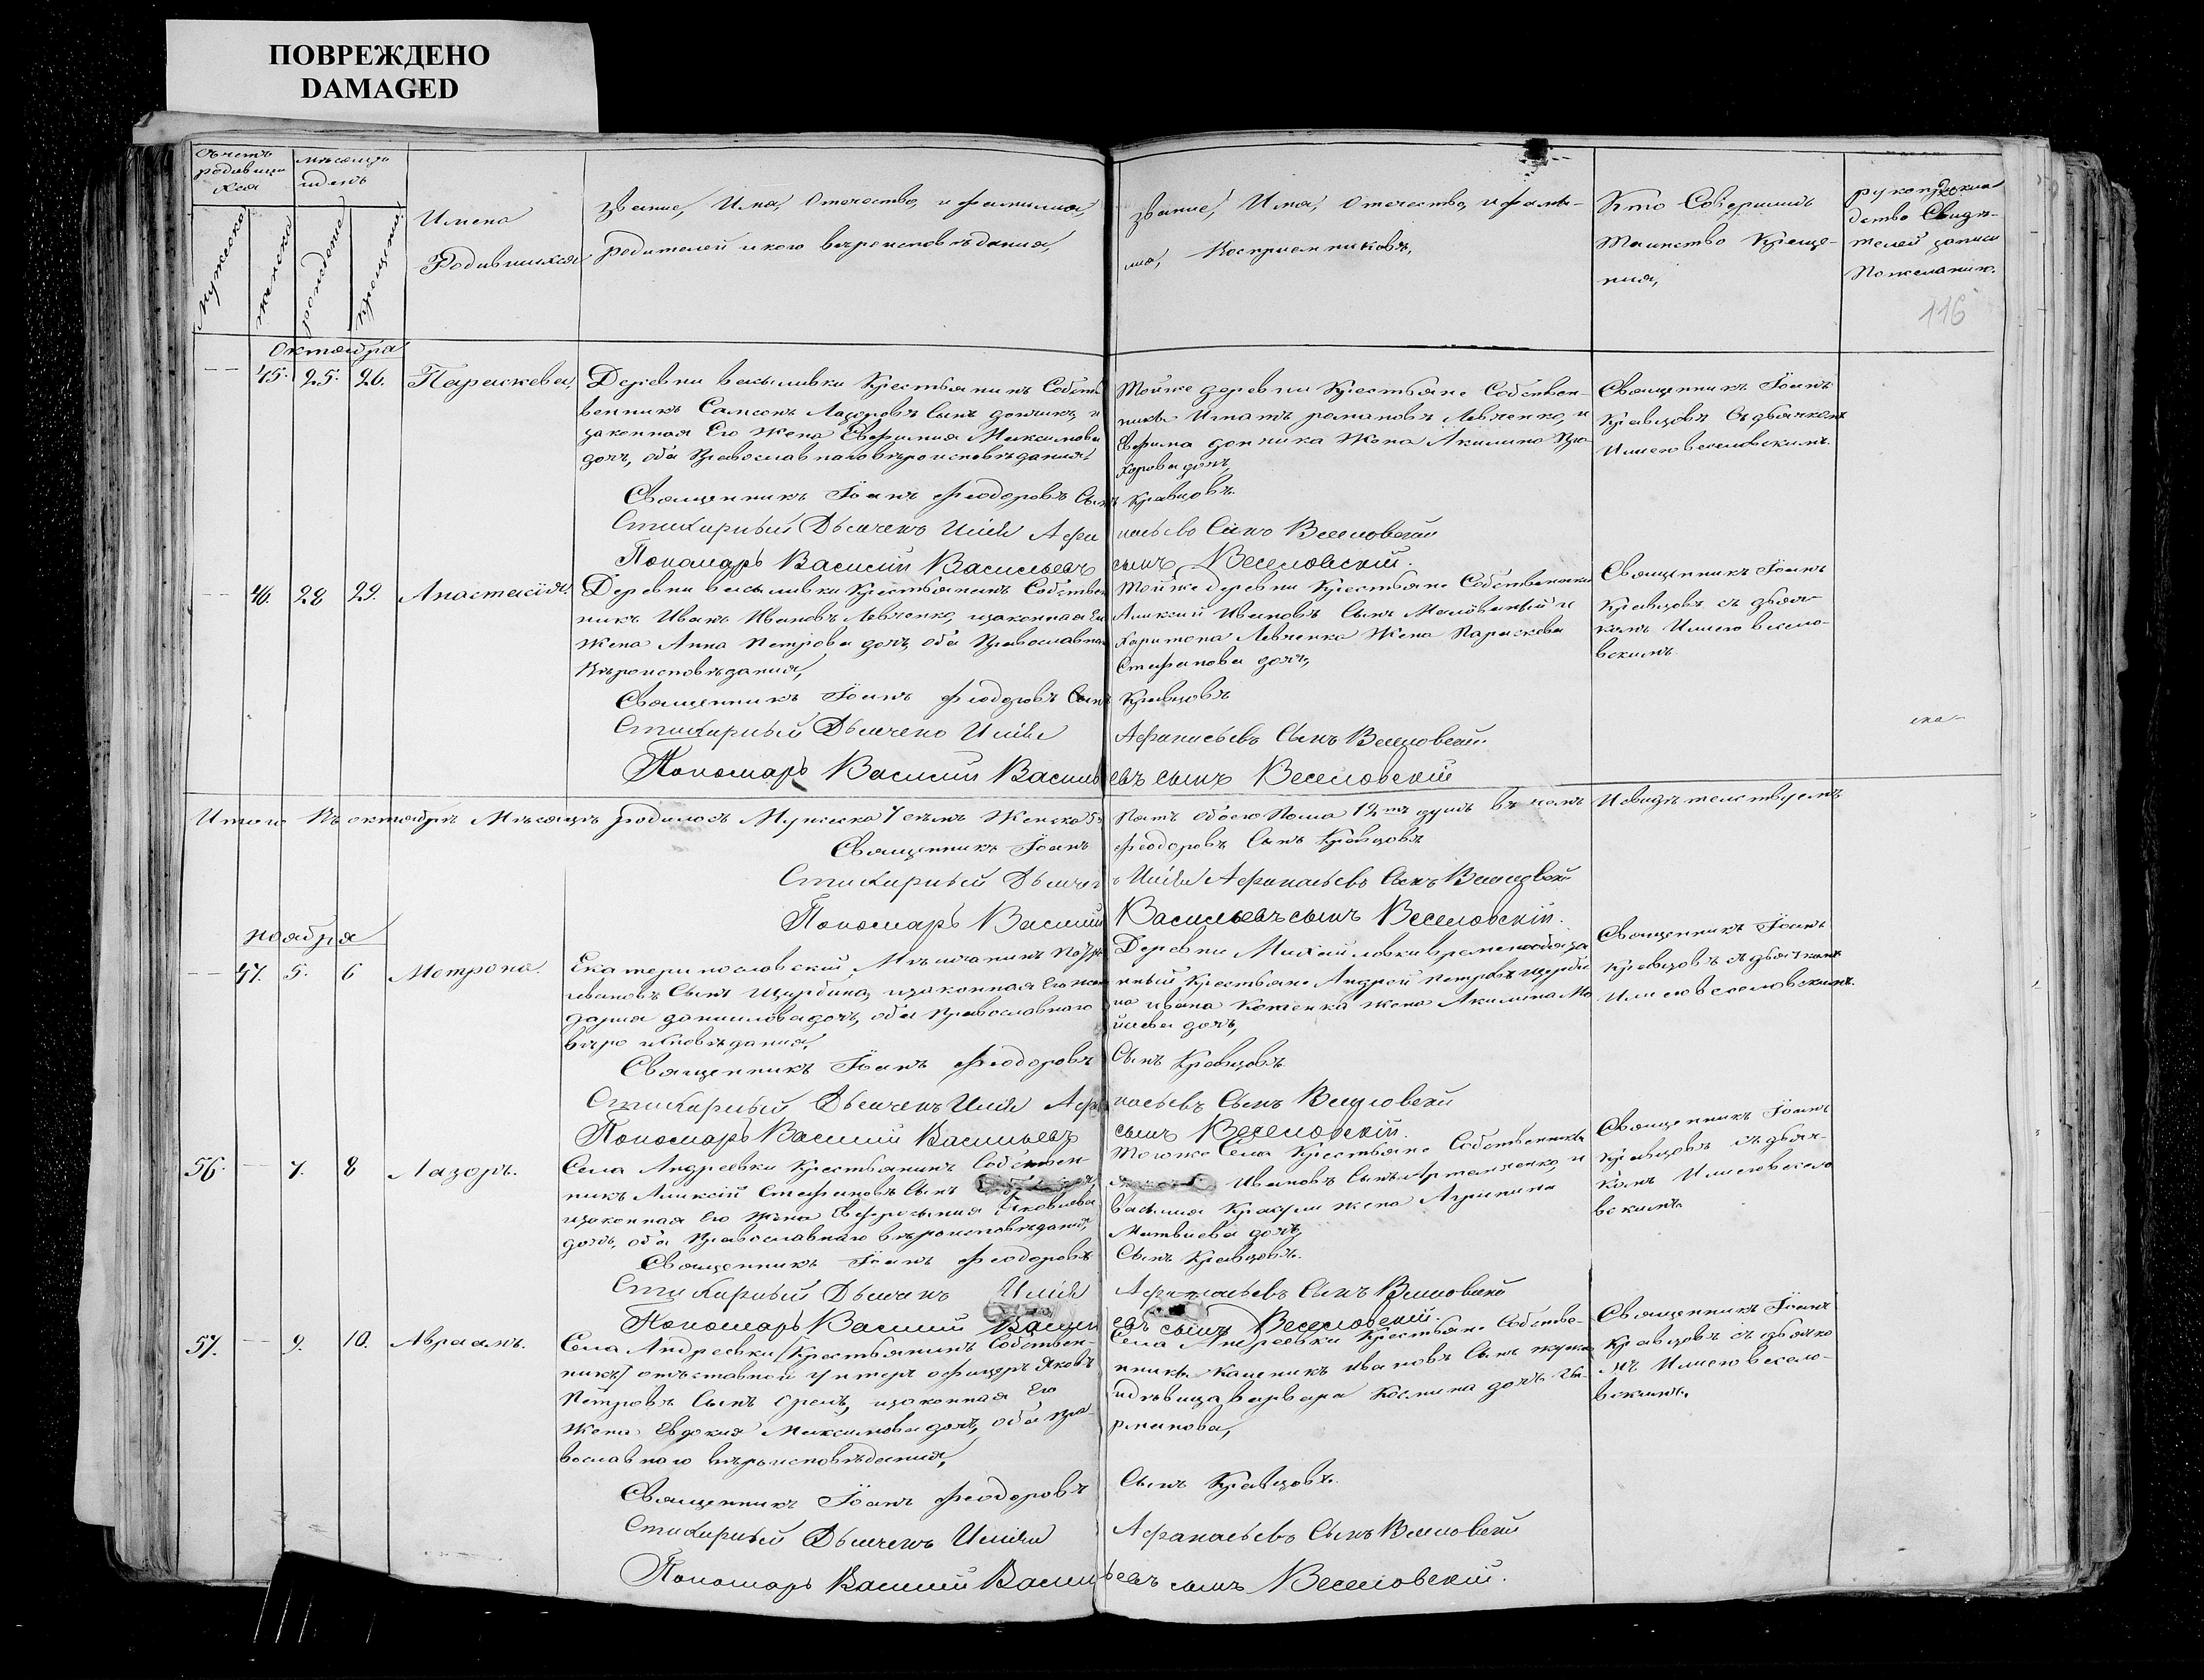 ПОВРЕЖДЕНО
DAMAGED
Счетъ родившихся
мѣсяцъ и день
Мужеска
Женска
рожденіе
Крещеніе
Имена
Родившихся
Званіе, Имя, Отечество, и фамилия,
родителей и кого вѣроисповѣданія,
Званіе, Имя, Отечество, и фами-
лия, Восприемниковъ,
Кто Совершилъ
Таинство Креще-
нія,
рукоприкла
дство Свидѣ-
телей записи
По желанию.
116
Октября
45. 25. 26. Параскева,
Деревни васьливки Крестьянинъ Собст
венникъ Самсонъ Лазоревъ Сынъ дончикъ, и
законная Его Жена Евфимия Максимова
дочь, оба Православнаго вѣроисповѣданія,
Тойже деревни Крестьяне Собствен-
ники Игнатъ романовъ Левченко, и
Ефима дончика Жена Акилина
харова дочь,
Священникъ Іоанъ
Кравцовъ съ дьячкомъ
Илиею веселовскимъ.
Священникъ Іоанъ Феодоровъ Сынъ Кравцовъ.
Стихарный Дьячекъ Илія Афанасьевъ Сынъ Веселовский
Пономарь Василий Васильевъ сынъ Веселовскій.
46. 28 29. Анастасія.
Деревни васьливки Крестьянинъ Собствен
никъ Иванъ Ивановъ Левченко, и законная Его
Жена Анна Петрова дочь, оба Православнаго
Вѣроисповѣданія,
Тойже деревни Крестьяне Собственники
Алексій Ивановъ Сынъ Малёваный и
Харитона Левченка Жена Параскева
Стефанова дочь,
Священникъ Іоанъ
Кравцовъ съ дьяч-
комъ Илиею весело-
вскимъ.
Священникъ Іоанъ Феодоровъ Сынъ Кравцовъ
Стихарный Дьячекъ Илія Афанасьевъ Сынъ Веселовский
Пономарь Василий Васильевъ сынъ Веселовскій
Итого Въ октябрѣ Мѣсяцѣ родилось Мужеска 7 семь Женска 5 Пять обоего Пола 12 ть душъ въ чемъ И свидѣтельствуемъ
Священникъ Іоанъ Феодоровъ Сынъ Кравцовъ
Стихарный Дьячекъ Илія Афанасьевъ Сынъ Веселовский
Пономарь Василий Васильевъ сынъ Веселовскій.
ноября
47. 5. 6 Матрона.
Екатеринославскій Мѣщанинъ
ивановъ Сынъ Щербина, и законная Его жена
дария даниилова дочь, оба Православнаго
вѣроисповѣданія,
Деревни Михайловки временнообяза
нный Крестьяне Андрей Петровъ Щерби
на ивана Котенка жена Акилина
дочь,
Священникъ Іоанъ
Кравцовъ съ дьячкомъ
Илиею веселовскимъ.
Священникъ Іоанъ Феодоровъ Сынъ Кравцовъ
Стихарный Дьячекъ Илія Афанасьевъ Сынъ Веселовский
Пономарь Василий Васильевъ сынъ Веселовскій.
56. 7. 8 Лазорь.
Села Андреевки Крестьянинъ Собствен-
никъ Алексій Стефановъ Сынъ
и законная Его Жена Евфросиния Яковлева
дочь, оба Православнаго вѣроисповѣданія,
Тогоже Села Крестьяне Собственники
Ивановъ Сынъ Артеменко, и
василия Жена Агрипина
Матвиева дочь,
Священникъ Іоанъ
Кравцовъ съ дьяч-
комъ Илиею весело
вскимъ
Священникъ Іоанъ Феодоровъ Сынъ Кравцовъ.
Стихарный Дьячекъ Илія Афанасьевъ Сынъ Веселовский
Пономарь Василий Васильевъ сынъ Веселовскій.
57. 9. 10. Авраамъ.
Села Андреевки Крестьянинъ Собствен-
никъ отъставной унтеръ офицеръ Яковъ
Петровъ Сынъ Орелъ, и законная Его
Жена Евдокия Максимова дочь, оба пра-
вославнаго вѣроисповѣданія,
Села Андреевки Крестьяне Собстве-
нники ивановъ Сынъ
и дѣвица варвара Космина дочь
Священникъ Іоанъ
Кравцовъ съ дьячко
мъ Илиею весело-
вскимъ.
Священникъ Іоанъ Феодоровъ Сынъ Кравцовъ.
Стихарный Дьячекъ Илія Афанасьевъ Сынъ Веселовский
Пономарь Василий Васильевъ сынъ Веселовскій.